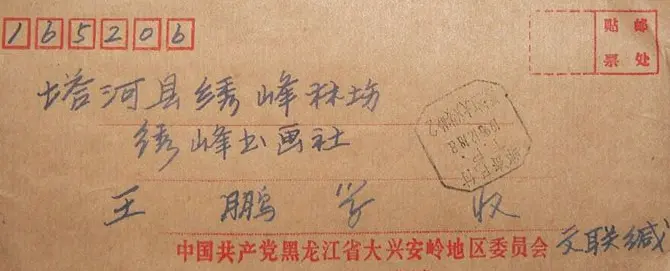 165206
贴邮
票处
塔河县绣峰林场
绣峰书画社
王鹏学 收
中国共产党黑龙江省大兴安岭地区委员会 文联缄